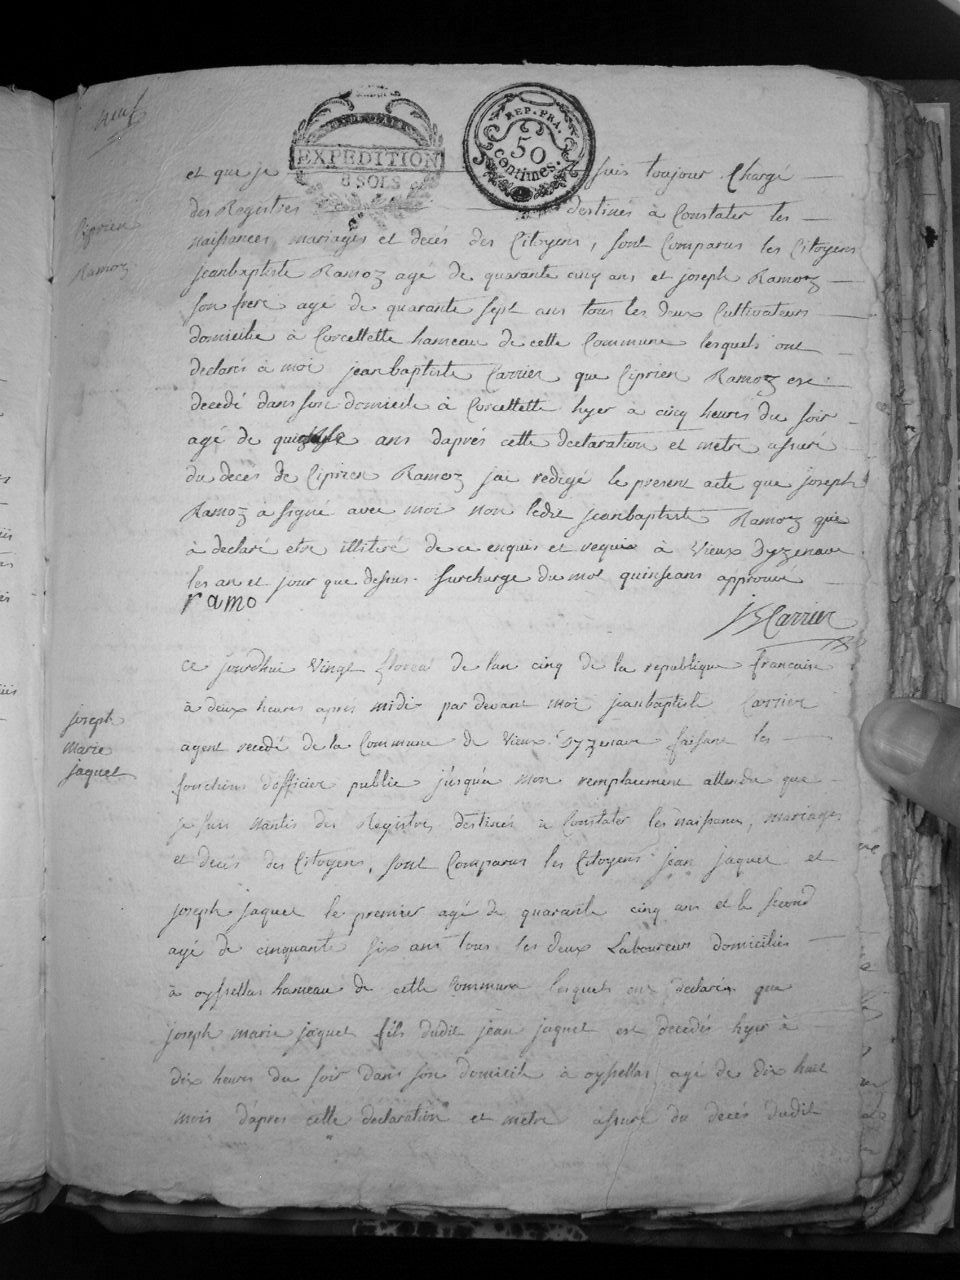 neuf
EXPEDITION
8 SOLS
REP. FRA.
50
centimes.
et que je suis toujour Chargé
des Registres destinés à Constater les
naissances mariages et decés des Citoyens, sont Comparus les Citoyens
Ciprien
Ramoz
jeanbaptiste Ramoz agé de quarante cinq ans et joseph Ramoz
son frere age de quarante sept ans tous les deux Cultivateurs
domicilie à Corcellette hameau de cette Commune lesquels ont
declarés à moi jeanbaptiste Carrier que Ciprien Ramoz est
decedé dans son domicile à Corcellette hyer à cinq heures du soir
agé de ans daprés cette declaration et metre assuré
du decés de Ciprien Ramoz jai redigé le present acte que joseph
Ramoz à signé avec moi non ledit jeanbaptiste Ramoz qui
à declaré etre illitéré de ce enquis et requis à Vieux Dyzenave
les an et jour que dessus. surcharge du mot quinseans approuvé
ramo
JB Carrier
ce jourdhui Vingt floreal de lan cinq de la republique francaise
à deux heures après midi par devant moi jeanbaptiste Carrier
joseph
marie
jaquet
agent recedé de la Commune de Vieux Dyzenave faisant les
fonctions dofficier public jusqua mon remplacement attendu que
je suis nantis des Registres destinés à Constater les naissances, mariages
et decés des Citoyens, sont Comparus les Citoyens jean jaquet et
joseph jaquet le premier agé de quarante cinq ans et le second
agé de cinquante six ans tous les deux Laboureurs domiciliés
à oyssellas hameau de cette Commune lesquels ont declarés que
joseph marie jaquet fils dudit jean jaquet est decedés hyer à
dix heures du soir dans son domicile à oyssellas agé de dix huit
mois daprés cette declaration et metre assuré du decés dudit